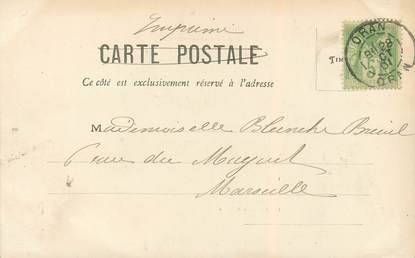 Imprimé
CARTE POSTALE
Ce côté est exclusivement réservé à l'adresse
TIM
ORAN
ORAN
Mademoiselle Blanche Breuil
du Muguet
Marseille